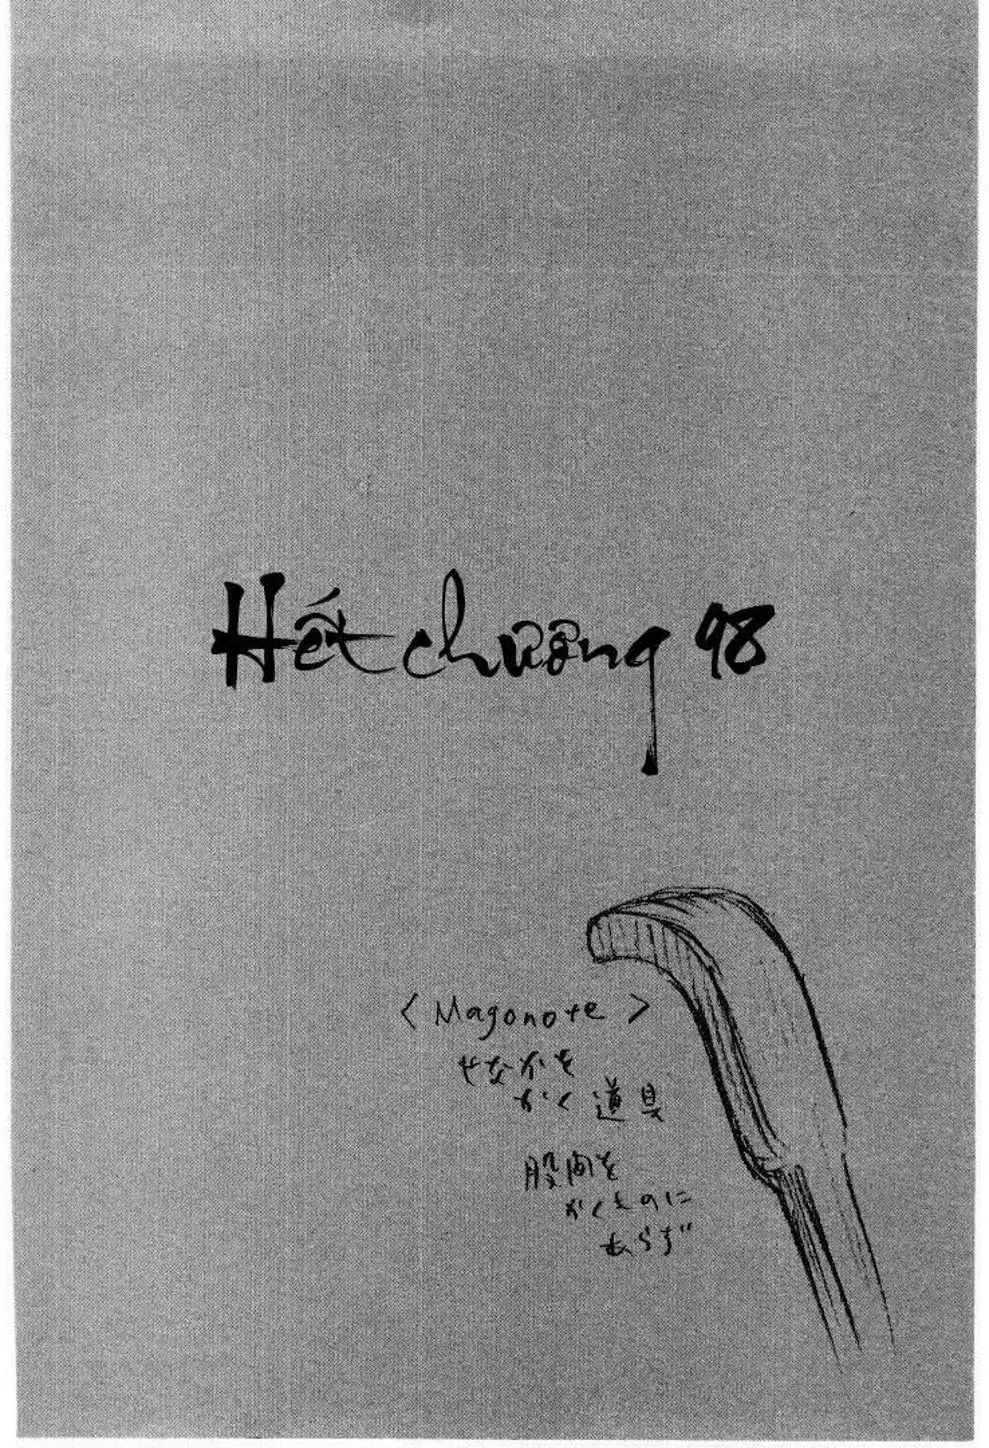 Hết chương 98
< Magonote >
せなかを
かく 道具
股間を
かくものに
あらず